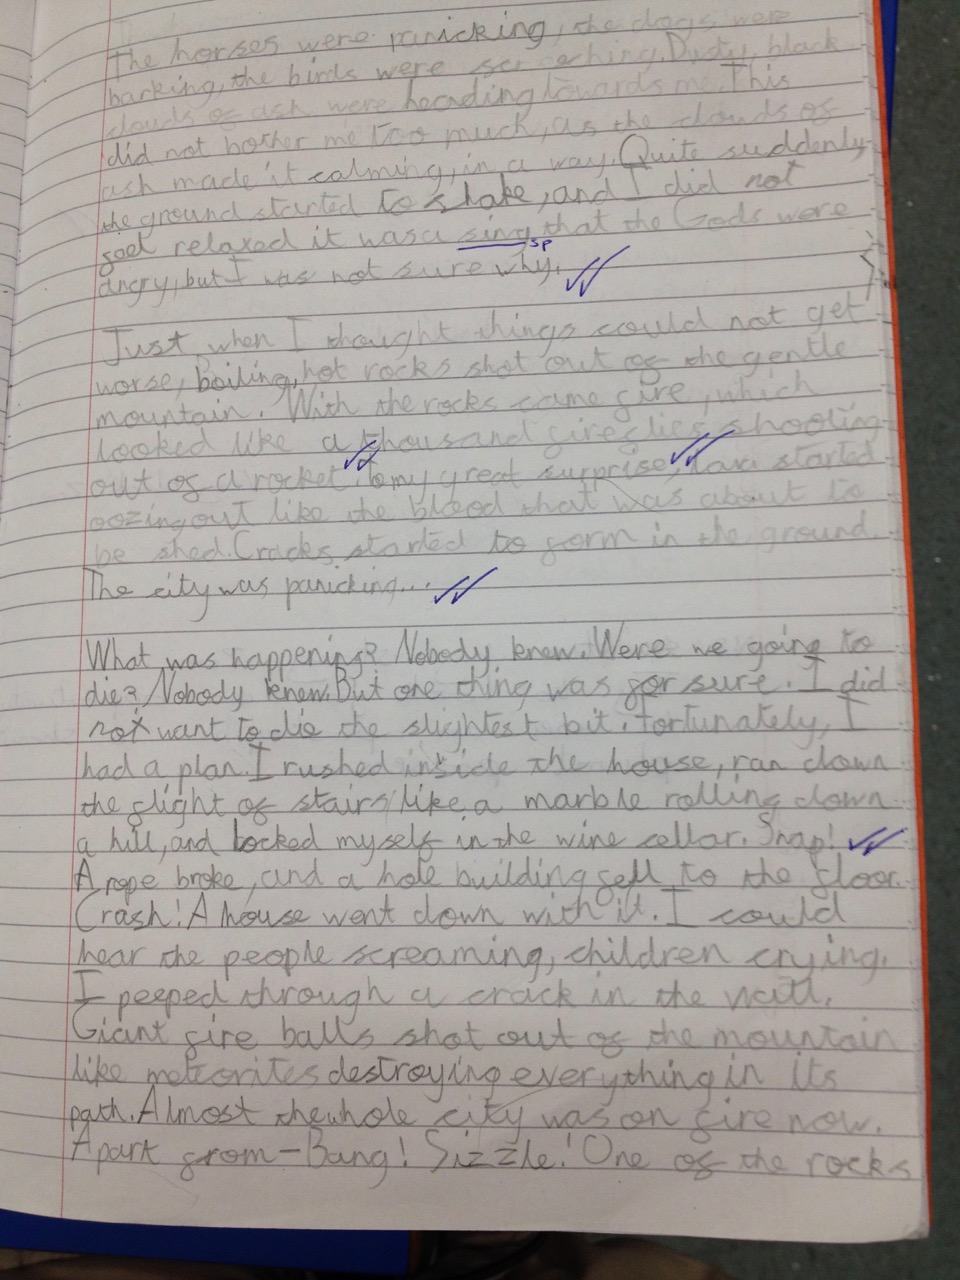 The horses were panicking, the dogs were
barking, the birds were screeching. Dusty, black
clouds of ash were heading towards me. This
did not bother me too much, as the clouds of
ash made it calming, in a way. Quite suddenly
the ground started to shake, and I did not
feel relaxed it was a sing that the Gods were
sp
angry, but I was not sure why.
Just when I thought things could not get
worse, boiling, hot rocks shot out of the gentle
mountain. With the rocks came fire, which
looked like a thousand fireflies shooting
out of a rocket. To my great surprise, lava started
oozing out like the blood that was about to
be shed. Cracks started to form in the ground.
The city was panicking...
What was happening? Nobody knew. Were we going to
die? Nobody knew. But one thing was for sure. I did
not want to die the slightest bit. Fortunately, I
had a plan. I rushed inside the house, ran down
the flight of stairs like a marble rolling down
a hill, and locked myself in the wine cellar. Snap!
A rope broke, and a hole building fell to the floor.
Crash! A house went down with it. I could
hear the people screaming, children crying.
I peeped through a crack in the wall.
Giant fire balls shot out of the mountain
like meteorites destroying everything in its
path. Almost the whole city was on fire now.
Apart from - Bang! Sizzle! One of the rocks